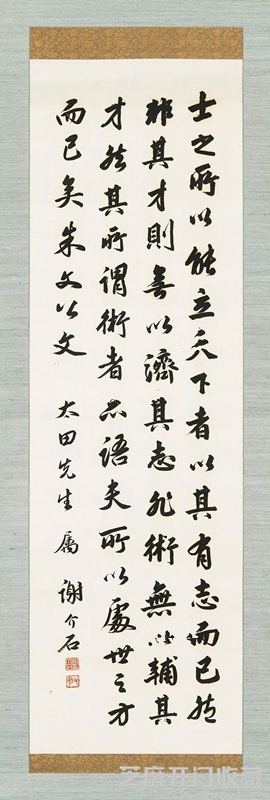 士之所以能立天下者以其有志而已然
非其才則無以濟其志非術無以輔其
才然其所謂術者亦語夫所以處世之方
而已矣朱文公文
太田先生 属 谢介石
芝麻开门收藏